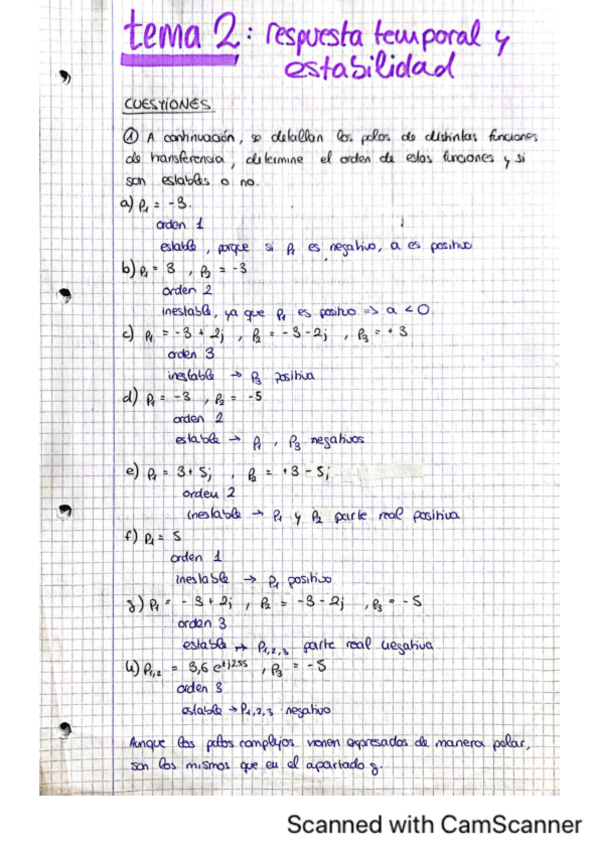 tema 2: respuesta temporal y
estabilidad
CUESTIONES
① A continuación, se detallan los polos de distintas funciones
de transferencia, determine el orden de estas funciones y si
son estables o no.
a) P₁ = -3.
orden 1
estable, porque si P₁ es negativo, a es positivo
b) P₁ = 3 , P₂ = -3
orden 2
inestable, ya que P₁ es positivo => a < 0
c) P₁ = -3 + 2j , P₂ = -3 - 2j , P₃ = + 3
orden 3
inestable → P₃ positiva
d) P₁ = -3 , P₂ = -5
orden 2
estable → P₁ , P₂ negativos
e) P₁ = 3 + 5j , P₂ = +3 - 5j
orden 2
inestable → P₁ y P₂ parte real positiva
f) P₁ = 5
orden 1
inestable → P₁ positivo
g) P₁ = - 3 + 2j , P₂ = -3 - 2j , P₃ = - 5
orden 3
estable → P₁,₂,₃ parte real negativa
h) P₁,₂ = 3,6 e^±j2.55 , P₃ = - 5
orden 3
estable → P₁,₂,₃ negativo
Aunque los polos complejos vienen expresados de manera polar,
son los mismos que en el apartado g.
Scanned with CamScanner